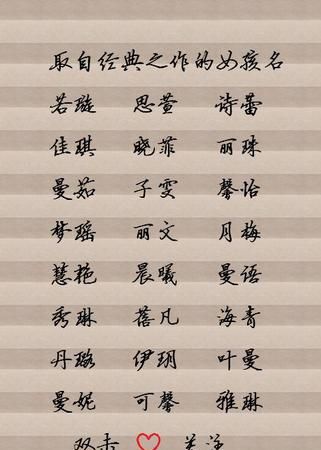 取自经典之作的女孩名
若璇 思萱 诗蕾
佳琪 晓菲 丽珠
曼茹 子雯 馨怡
梦瑶 丽文 月梅
慧艳 晨曦 曼语
秀琳 蓓凡 海青
丹璐 伊玥 叶曼
曼妮 可馨 雅琳
双击 关注